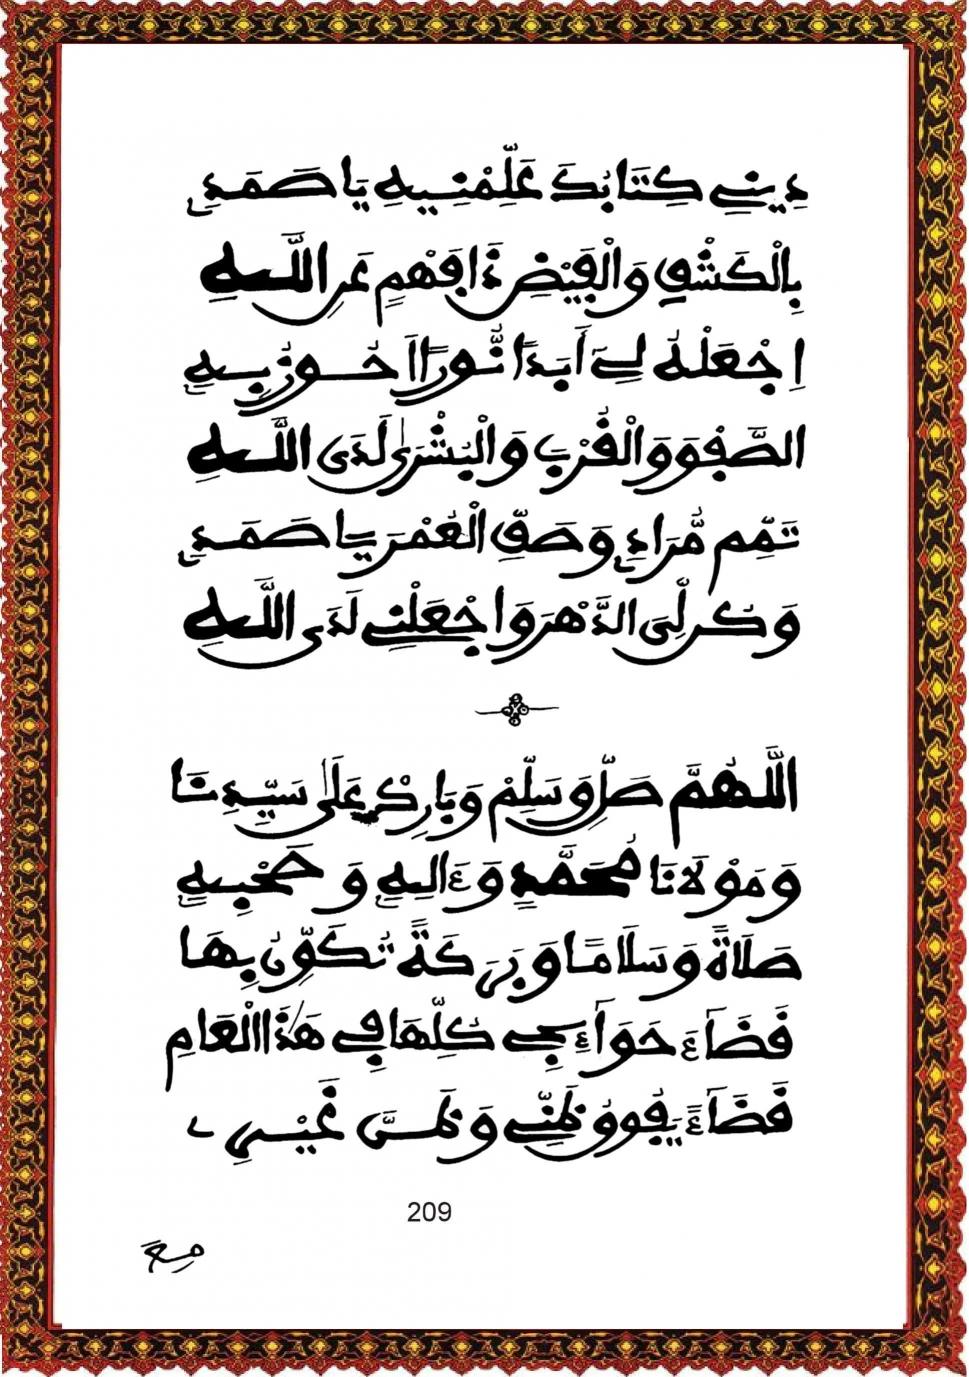 دِينِي كِتَابَكَ عَلِّمْنِيهِ يَا صَمَدِي
بِالْكَشْفِ وَالْفَيْضِ ذَا فَهْمٍ عَنِ اللَّهِ
اِجْعَلْهُ لِي أَبَدًا نُّورًا أَحُوزُ بِهِ
الصَّفْوَ وَالْقُرْبَ وَالْبُشْرَىٰ لَدَى اللَّهِ
تَمِّمْ مُّرَادِي وَصَفِّ الْعُمْرَ يَا صَمَدِي
وَكُن لِّى الدَّهْرَ وَاجْعَلْنِي لَدَى اللَّهِ
اللَّهُمَّ صَلِّ وَسَلِّمْ وَبَارِكْ عَلَىٰ سَيِّدِنَا
وَمَوْلَانَا مُحَمَّدٍ وَءَالِهِ وَصَحْبِهِ
صَلَاةً وَسَلَامًا وَبَرَكَةً تُكَوِّنُ بِهَا
قَضَاءَ حَوَآءِجِي كُلِّهَا فِي هَٰذَا الْعَامِ
قَضَآءً يَفُوقُ ظَنِّي وَظَنَّ غَيْرِي
209